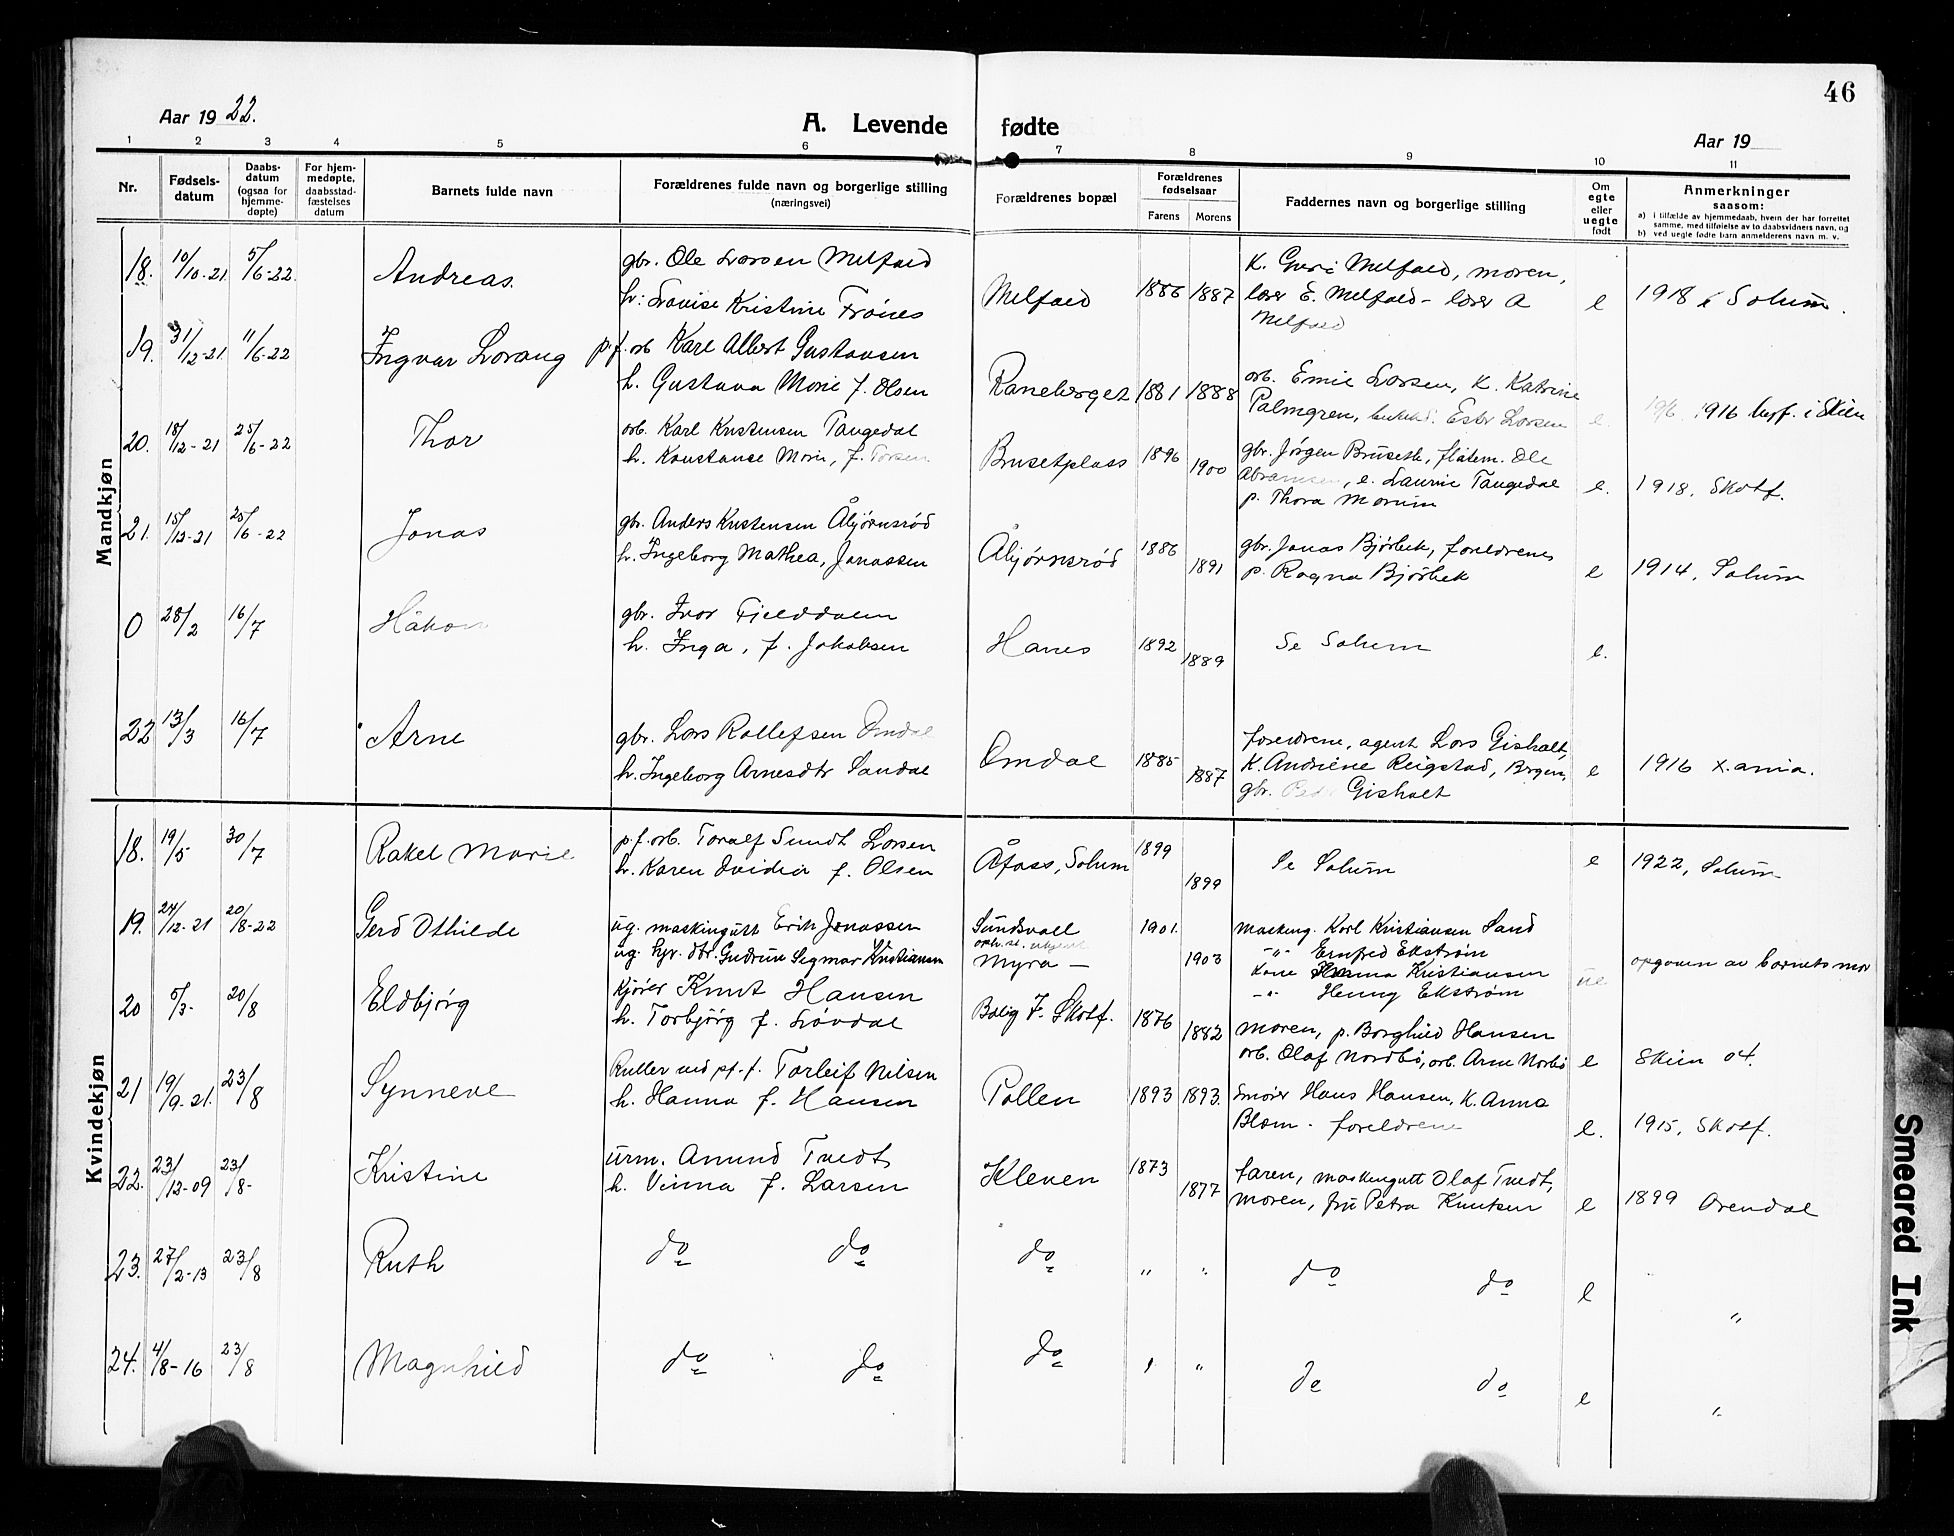 46
Aar 1922.
A. Levende fødte
Aar 19
1 2 3 4 5 6 7 8 9 10 11
Nr.
Fødsels-
datum
Daabs-
datum
(ogsaa for
hjemme-
døpte)
For hjem-
medøpte,
daabsstad-
fæstelses
datum
Barnets fulde navn
Forældrenes fulde navn og borgerlige stilling
(næringsvei)
Forældrenes bopæl
Forældrenes
fødselsaar
Farens Morens
Faddernes navn og borgerlige stilling
Om
egte
eller
uegte
født
Anmerkninger
saasom:
a) i tilfælde av hjemmedaab, hvem der har forrettet
samme, med tilføielse av to daabsvidners navn, og
b) ved uegte fødte barn anmelderens navn m. v.
Mandkjøn
18. 10/10-21 5/6-22 Andreas
gbr. Ole Larsen Melfald
h: Lovise Kristine Frónes
Melfald 1886 1887
K. Guri Melfald, moren,
lærer E. Melfald - lærer A
Melfald
e 1918 i Solum.
19. 31/12-21 11/6-22 Ingvar Lorang
p.f. arb Karl Albert Gustavsen
h. Gustava Marie f. Olsen
Raneberget 1881 1888
arb. Emil Larsen, K. Katrine
Palmgren, Ester Larsen
e. 1916 byf. i Skien
20. 18/12-21 25/6-22 Thor
arb. Karl Kristensen Tangedal
h. Konstanse Marie, f. Torsen
Brusetplass 1896 1900
gbr. Jørgen Bruseth, fløtem. Ole
Abramsen, e. Laurine Tangedal
p. Thora Morum
e. 1918, Skotf.
21. 15/12-21 25/6-22 Jonas
gbr. Anders Kristensen Åbjørnsrød
h. Ingeborg Mathea, Jonassen
Åbjørnsrød 1886 1891
gbr. Jonas Bjørbek, foreldrene
p. Ragna Bjørbek
e 1914, Solum
0 28/2 16/7 Håkon
gbr. Ivar Fjelddalen
h. Inga, f. Jakobsen
Hanes 1892 1889
Se Solum
e.
22 13/3 16/7 Arne
gbr. Lars Rollefsen Omdal
h. Ingeborg Arnesdtr Sandal
Omdal 1885 1887
foreldrene, agent Lars Gisholt,
K. Andrine Reigstad, Bergen,
gbr. Gisholt
e 1916 X.ania.
Kvindekjøn
18. 19/5 30/7 Rakel Marie
p.f. arb. Toralf Sundt Larsen
h. Karen Ovidia f. Olsen
Åfoss, Solum 1899 1899
Se Solum
e 1922, Solum
19. 24/12-21 20/8-22 Gerd Othilde
ug. maskingutt Erik Jonassen
ug. hyr. dtr. Gudrun Segmar Kristiansen
Sundsvall
Myra - 1901. 1903
masking. Karl Kristiansen Sand
-"- Ernfred Ekstrøm
Kone Hanna Kristiansen
-"- Henny Ekstrøm
ue. opgaven av barnets mor
20 5/3 20/8 Eldbjørg
kjører Knut Hansen
h. Torbjørg f. Løvdal
Bolig F. Skotf. 1876 1882
moren, p. Borghild Hansen
arb. Olaf Nordbø, arb. Arne Norbø
e Skien 04.
21 19/9-21. 23/8 Synneve
Ruller ved pf.f. Torleif Nilsen
h. Hanna f. Hansen
Pollen 1893 1893.
smører Hans Hansen, K. Anna
Blom - foreldrene
e. 1915, Skotf.
22. 23/12-09 23/8- Kristine
urm. Amund Tvedt
h. Vinna f. Larsen
Kleven 1873 1877
faren, maskingutt Olaf Tvedt,
moren, fru Petra Knutsen
e 1899 Arendal
23. 27/2-13 23/8 Ruth
do do do " " do do e "
24. 4/8-16 23/8 Magnhild
do do do " " do do e "
Smeared Ink